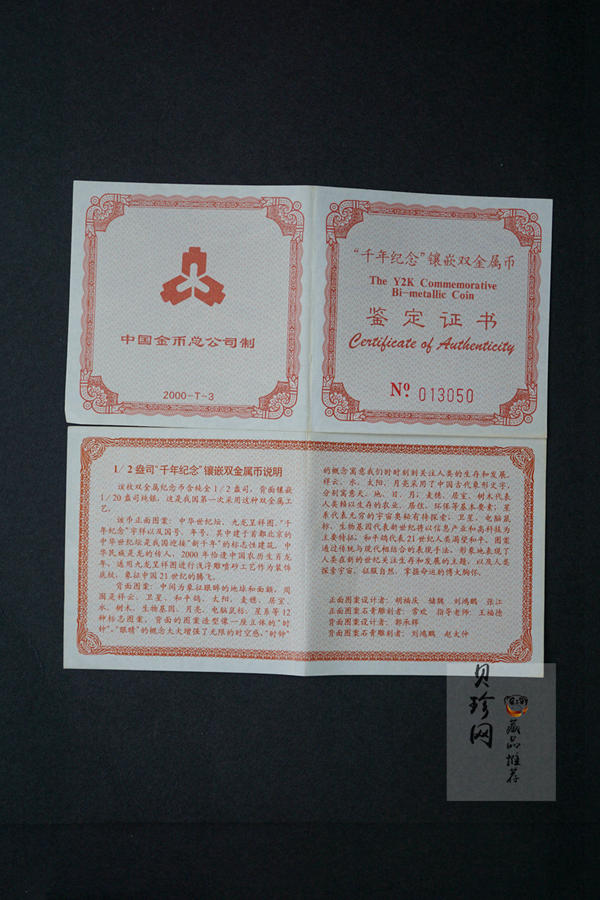 中国金币总公司制
2000-T-3
“千年纪念”镶嵌双金属币
The Y2K Commemorative
Bi-metallic Coin
鉴定证书
Certificate of Authenticity
Nº 013050
1/2盎司“千年纪念”镶嵌双金属币说明
该枚双金属纪念币含纯金1/2盎司，背面镶嵌
1/20盎司纯银，这是我国第一次采用这种双金属工
艺。
该币正面图案：中华世纪坛、九龙呈祥图、“千
年纪念”字样以及国号、年号，其中建于首都北京的
中华世纪坛是我国迎接“新千年”的标志性建筑，中
华民族是龙的传人，2000年恰逢中国农历生肖龙
年，适用九龙呈祥图进行浅浮雕喷砂工艺作为装饰
底纹，象征中国21世纪的腾飞。
背面图案：中间为象征眼眸的地球和面额，周
围是祥云、卫星、和平鸽、太阳、麦穗、居室、
水、树木、生物基因、月亮、电脑鼠标、星系等12
种标志图案，背面的图案造型像一座立体的“时
钟”，“眼睛”的概念大大增强了无限的时空感，“时钟”
的概念寓意我们时时刻刻关注人类的生存和发展。
祥云、水、太阳、月亮采用了中国古代象形文字，
分别寓意天、地、日、月；麦穗、居室、树木代表
人类赖以生存的农业、居住、环保等基本要素；星
系代表无穷的宇宙奥秘有待探索；卫星、电脑鼠
标、生物基因代表新世纪将以信息产业和高科技为
主要特征；和平鸽代表21世纪人类渴望和平。图案
通过传统与现代相结合的表现手法，形象地表现了
人类在新的世纪关注生存和发展的主题，以及人类
探索宇宙、征服自然、掌握命运的博大胸怀。
正面图案设计者：胡福庆 储魏 刘鸿鹏 张江
正面图案石膏雕刻者：常欢 指导老师：王福德
背面图案设计者：郭承辉
背面图案石膏雕刻者：刘鸿鹏 赵大仲
贝珍网
藏品推荐